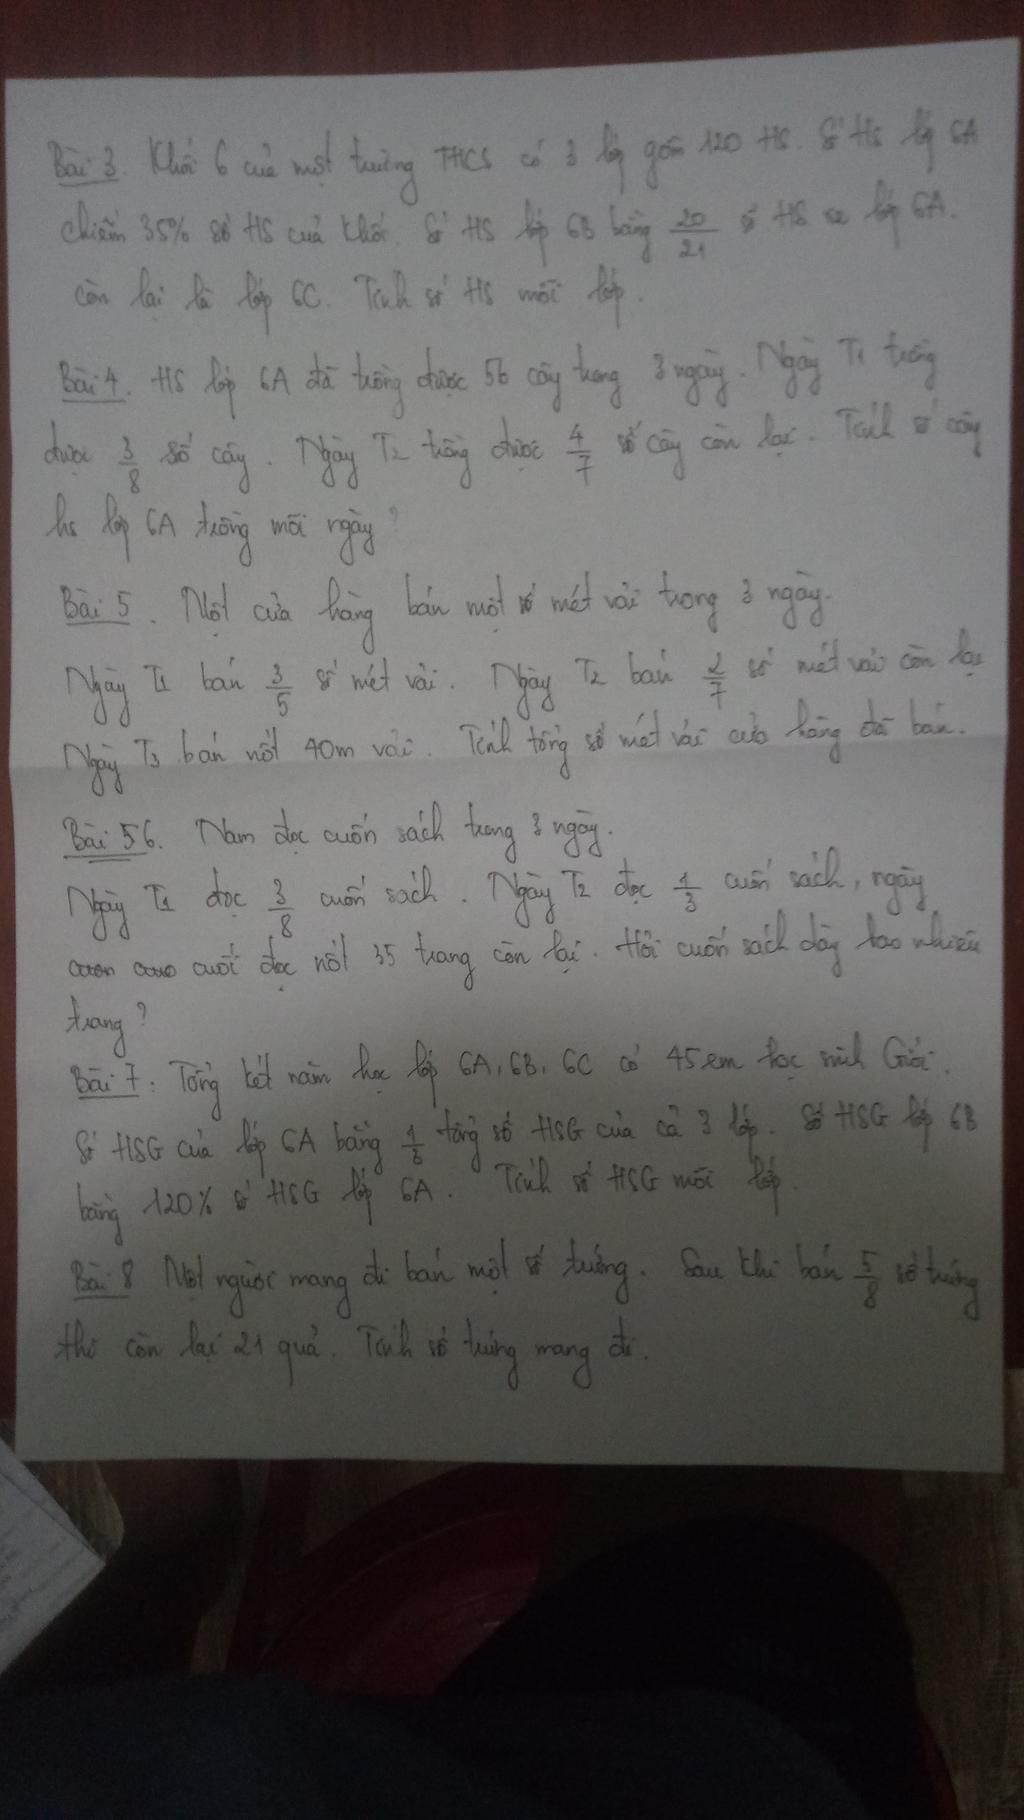 Bài 3. Khối 6 của một trường THCS có 3 lớp gồm 120 HS. Số HS lớp 6A
chiếm 35% số HS của khối. Số HS lớp 6B bằng 20/21 số HS lớp 6A.
còn lại là lớp 6C. Tính số HS mỗi lớp.
Bài 4. HS lớp 6A đã trồng được 56 cây trong 3 ngày. Ngày T1 trồng
được 3/8 số cây. Ngày T2 trồng được 4/7 số cây còn lại. Tính số cây
hs lớp 6A trồng mỗi ngày?
Bài 5. Một cửa hàng bán một số mét vải trong 3 ngày.
Ngày T1 bán 3/5 số mét vải. Ngày T2 bán 2/7 số mét vải còn lại
Ngày T3 bán nốt 40m vải. Tính tổng số mét vải cửa hàng đã bán.
Bài 56. Nam đọc cuốn sách trong 3 ngày.
Ngày T1 đọc 3/8 cuốn sách. Ngày T2 đọc 1/3 cuốn sách, ngày
cuối đọc nốt 35 trang còn lại. Hỏi cuốn sách dày bao nhiêu
trang?
Bài 7: Tổng kết năm học lớp 6A, 6B, 6C có 45 em học sinh Giỏi.
Số HSG của lớp 6A bằng 1/3 tổng số HSG của cả 3 lớp. Số HSG lớp 6B
bằng 120% số HSG lớp 6A. Tính số HSG mỗi lớp.
Bài 8 Một người mang đi bán một số trứng. Sau khi bán 5/8 số trứng
thì còn lại 21 quả. Tính số trứng mang đi.